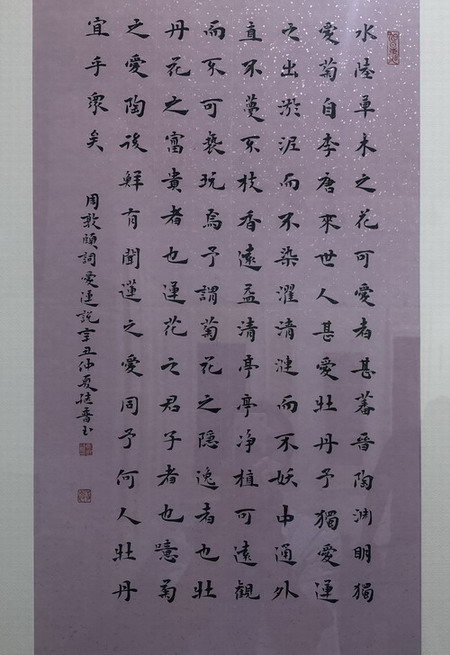 水陸草木之花可愛者甚蕃晉陶渊明獨
愛菊自李唐來世人甚愛牡丹予獨愛蓮
之出淤泥而不染濯清漣而不妖中通外
直不蔓不枝香遠益清亭亭净植可遠觀
而不可褻玩焉予謂菊花之隱逸者也牡
丹花之富貴者也蓮花之君子者也噫菊
之愛陶後鮮有聞蓮之愛同予何人牡丹
宜乎眾矣
周敦頤詞愛蓮說辛丑仲夏